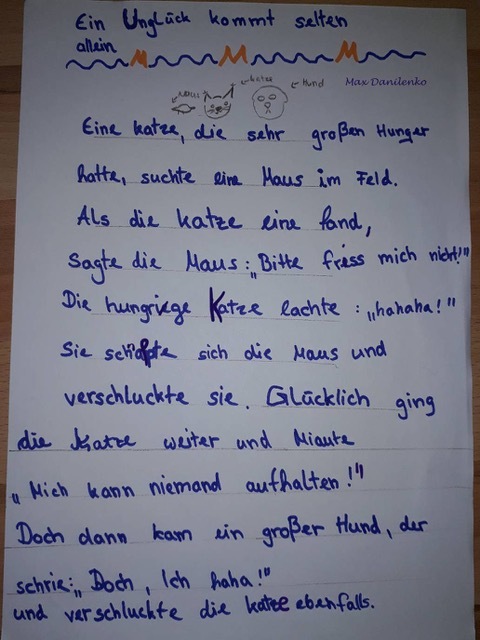 Ein Unglück kommt selten
allein
Maus Katze Hund
Max Danilenko
Eine Katze, die sehr großen Hunger
hatte, suchte eine Maus im Feld.
Als die Katze eine fand,
Sagte die Maus: „Bitte friss mich nicht!"
Die hungriege Katze lachte: „hahaha!"
Sie sich die Maus und
verschluckte sie. Glücklich ging
die Katze weiter und Miaute
„Mich kann niemand aufhalten!"
Doch dann kam ein großer Hund, der
schrie: „Doch, Ich haha!"
und verschluckte die Katze ebenfalls.